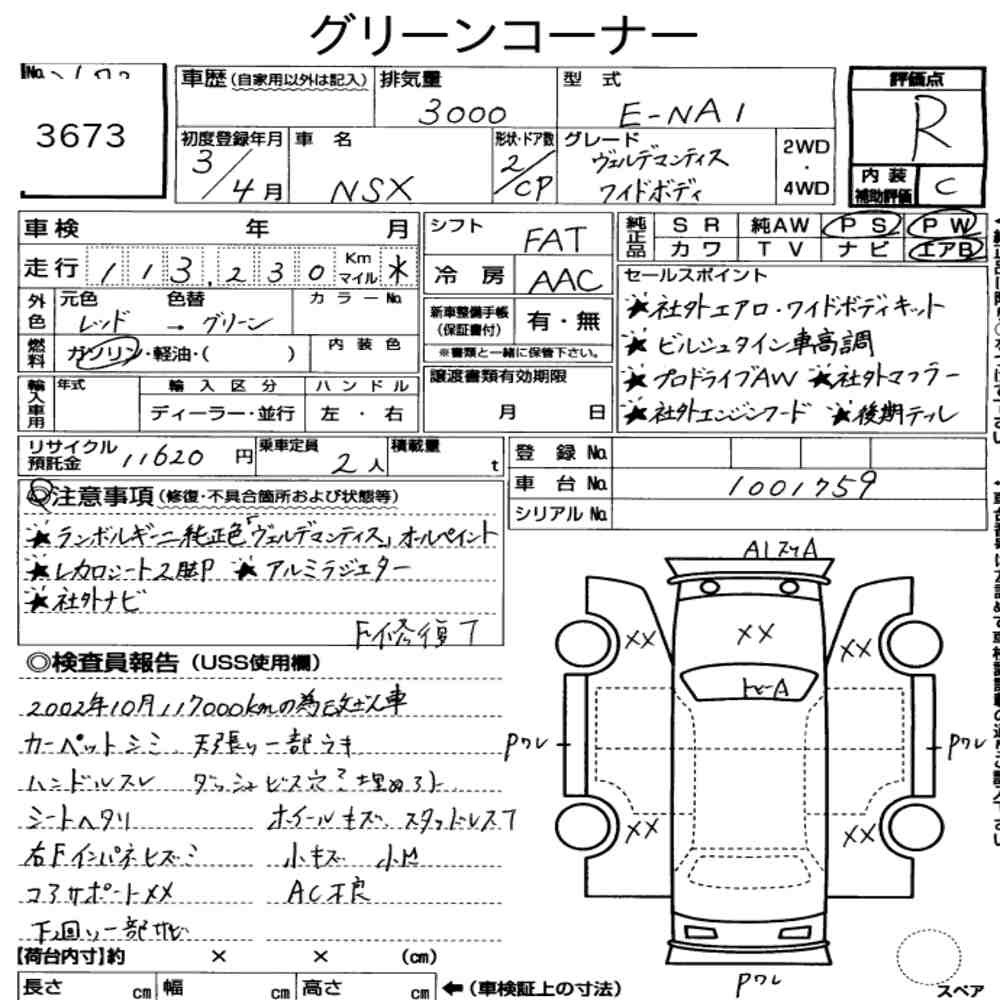 グリーンコーナー
No.
3673
車歴(自家用以外は記入)
排気量
3000
型 式
E-NA1
評価点
R
内装補助評価
C
初度登録年月
3/4月
車 名
NSX
形状・ドア数
2/CP
グレード
ヴェルデマンティス
ワイドボディ
2WD
・
4WD
車検 年 月
走行 113,230 Km マイル *
外色
元色 レッド → 色替 グリーン
カラーNo.
燃料
ガソリン・軽油・( )
内装色
輸入車用
年式
輸入区分
ディーラー・並行
ハンドル
左 ・ 右
シフト
FAT
冷房
AAC
新車整備手帳(保証書付)
有・無
※書類と一緒に保管下さい。
譲渡書類有効期限
月 日
純正品
SR 純AW PS PW
カワ TV ナビ エアB
セールスポイント
★社外エアロ・ワイドボディキット
★ ビルシュタイン車高調
★ プロドライブAW ★社外マフラー
★社外エンジンフード ★後期テール
リサイクル預託金 11620 円
乗車定員 2人
積載量 t
登録No.
車台No. 1001759
シリアルNo.
◎注意事項(修復・不具合箇所および状態等)
★ランボルギーニ純正色「ヴェルデマンティス」オールペイント
★レカロシート2脚P ★アルミラジエター
★社外ナビ
F修復了
◎検査員報告(USS使用欄)
2002年10月117000kmの為改ざん車
カーペットシミ 天張り一部ウキ
ハンドルスレ ダッシュビス穴 埋め
シートヘタリ ホイールキズ、スタッドレス
右Fインパネヒズミ 小キズ 小凹
コアサポートXX AC不良
下廻り一部サビ
A1
トビーA
XX
XX
XX
XX
XX
Pワレ
Pワレ
Pワレ
【荷台内寸】約 × × (cm)
長さ cm 幅 cm 高さ cm ←(車検証上の寸法)
スペア